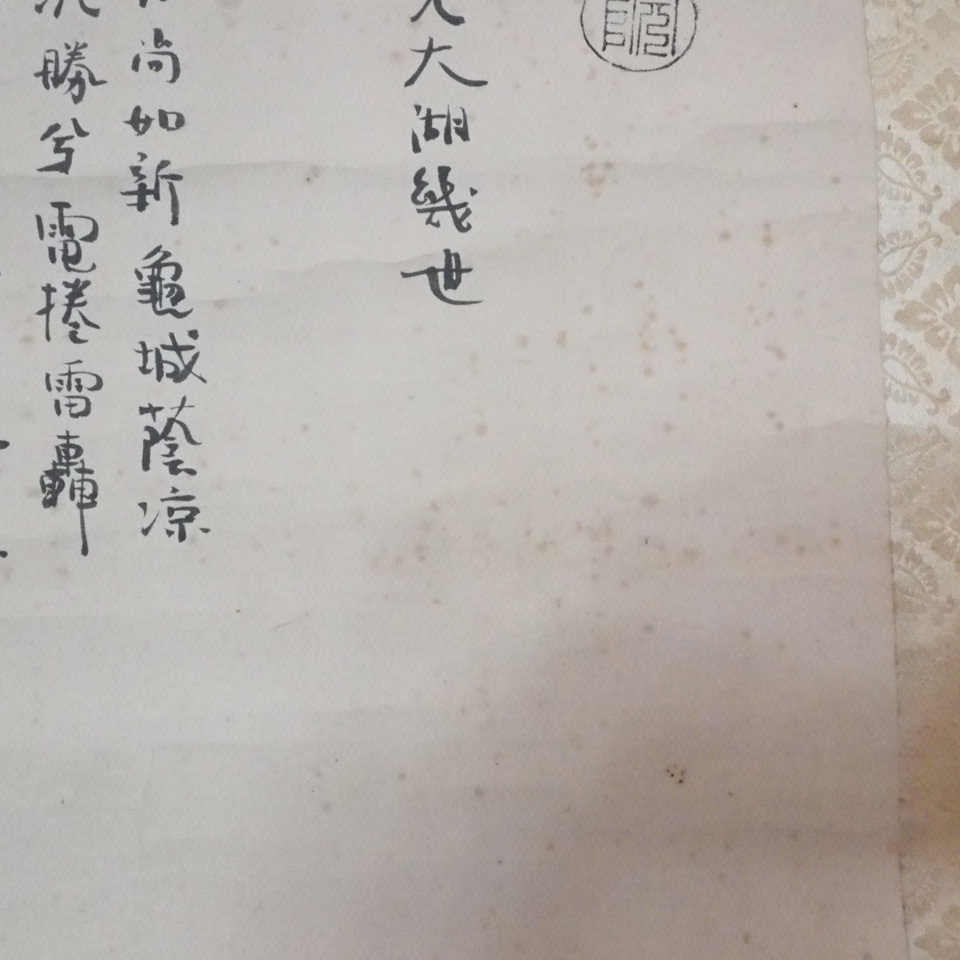 大湖幾世
尚如新龜城蔭凉
勝兮電捲雷轟